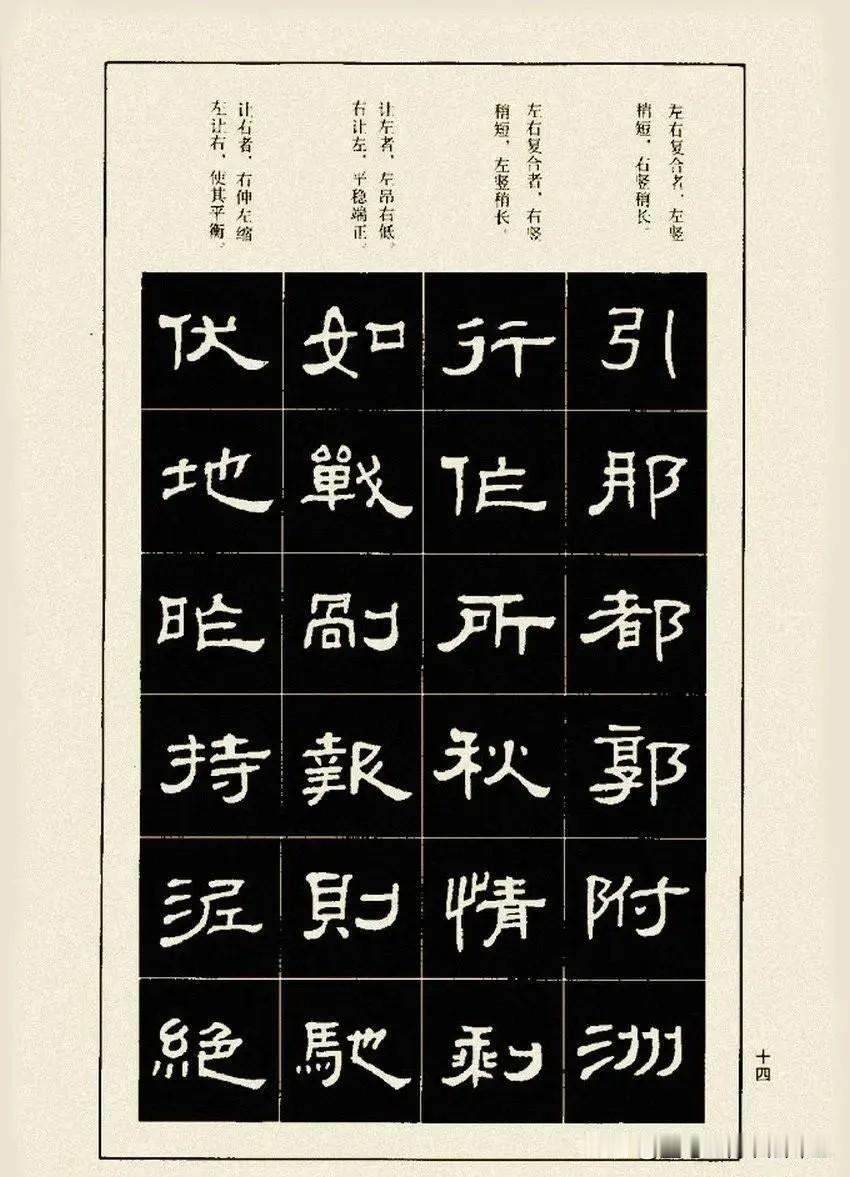 左右复合者，左竖
稍短，右竖稍长。
左右复合者，右竖
稍短，左竖稍长。
让左者，左昂右低，
右让左，平稳端正。
让右者，右伸左缩
左让右，使其平衡。
引那都郭附洲
行作所秋情
如戰剮報則馳
伏地昨持泥絶
十四